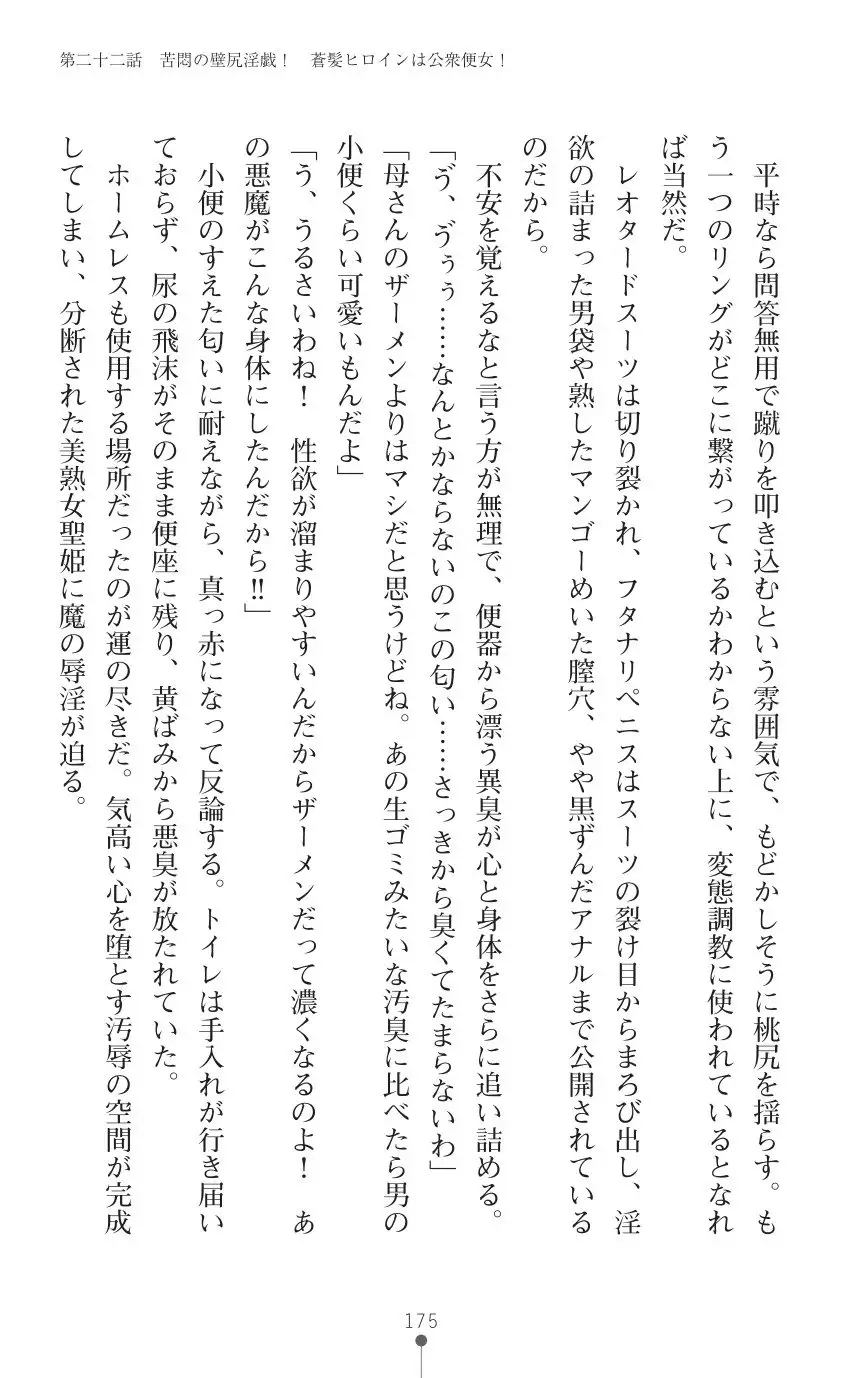 第二十二話　苦悶の壁尻淫戯！　蒼髪ヒロインは公衆便女！
　平時なら問答無用で蹴りを叩き込むという雰囲気で、もどかしそうに桃尻を揺らす。も
う一つのリングがどこに繋がっているかわからない上に、変態調教に使われているとなれ
ば当然だ。
　レオタードスーツは切り裂かれ、フタナリペニスはスーツの裂け目からまろび出し、淫
欲の詰まった男袋や熟したマンゴーめいた膣穴、やや黒ずんだアナルまで公開されている
のだから。
　不安を覚えるなと言う方が無理で、便器から漂う異臭が心と身体をさらに追い詰める。
「ゔ、ゔぅぅ……なんとかならないのこの匂い……さっきから臭くてたまらないわ」
「母さんのザーメンよりはマシだと思うけどね。あの生ゴミみたいな汚臭に比べたら男の
小便くらい可愛いもんだよ」
「う、うるさいわね！　性欲が溜まりやすいんだからザーメンだって濃くなるのよ！　あ
の悪魔がこんな身体にしたんだから‼」
　小便のすえた匂いに耐えながら、真っ赤になって反論する。トイレは手入れが行き届い
ておらず、尿の飛沫がそのまま便座に残り、黄ばみから悪臭が放たれていた。
　ホームレスも使用する場所だったのが運の尽きだ。気高い心を堕とす汚辱の空間が完成
してしまい、分断された美熟女聖姫に魔の辱淫が迫る。
175